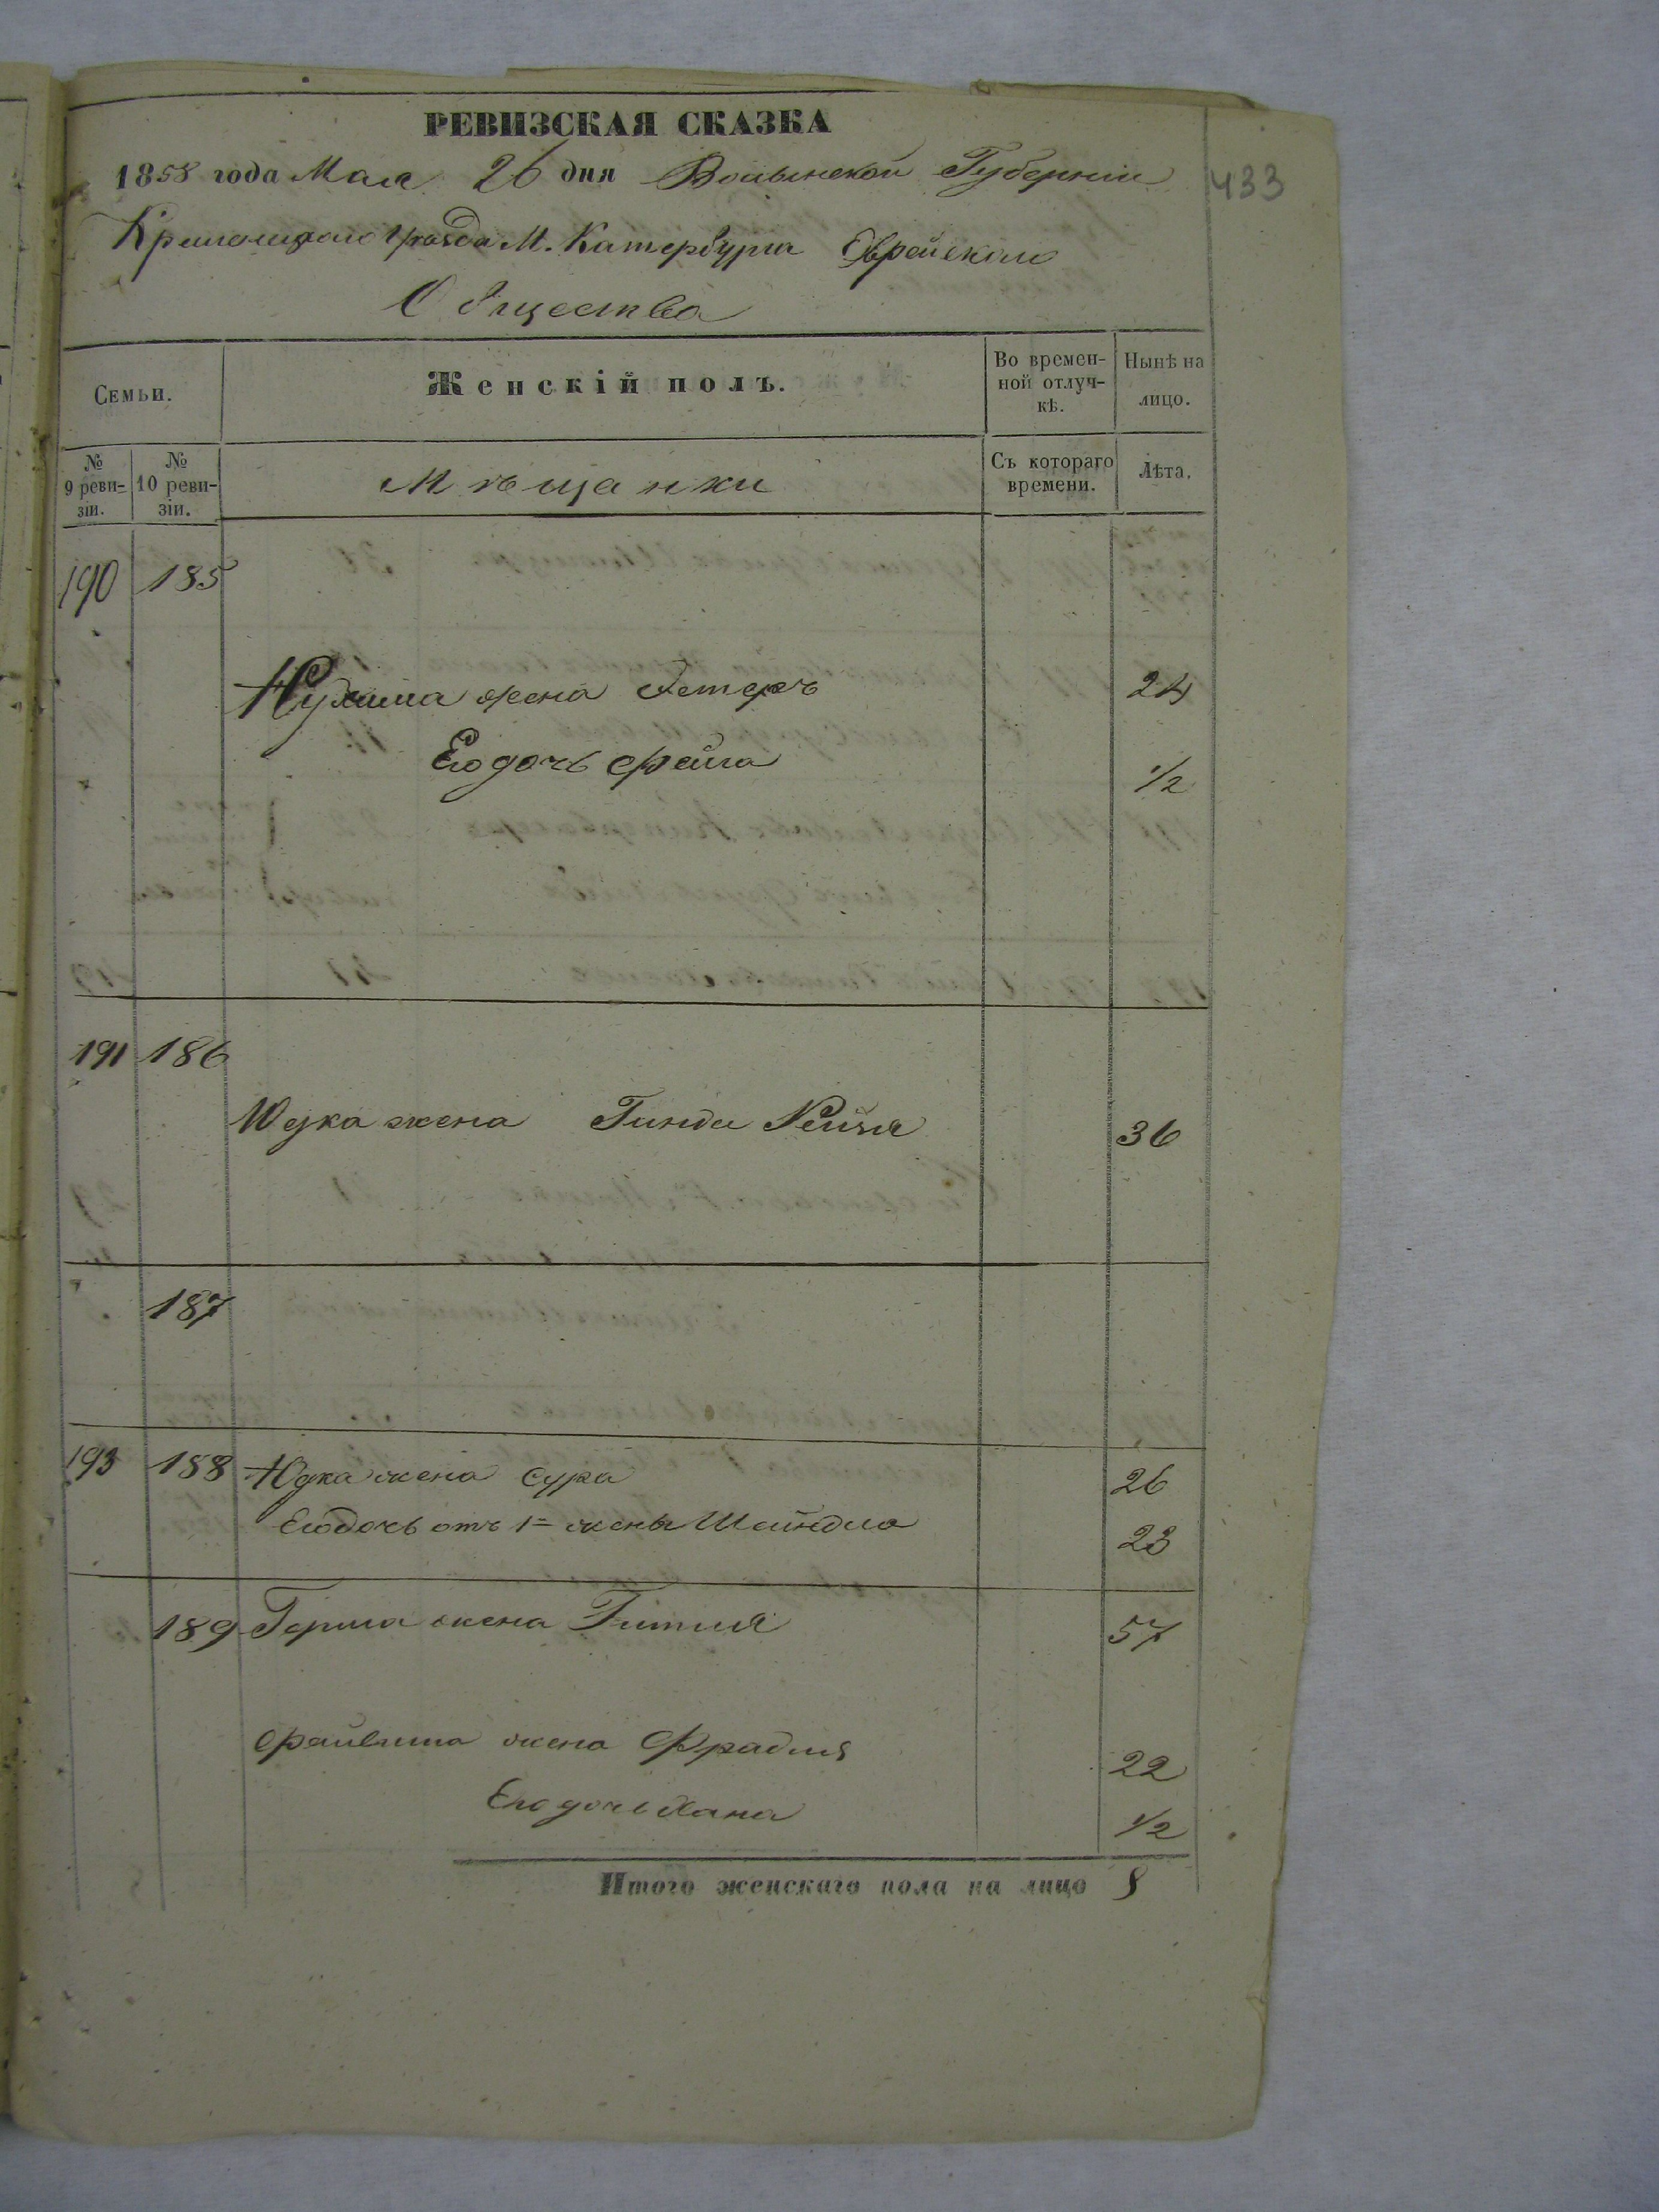 РЕВИЗСКАЯ СКАЗКА
1858 года Мая 26 дня Волынской Губерніи
433
Кременецкаго Уѣзда М. Катербурга Еврейскаго
Общества
Семьи.
Женскій полъ.
Во времен-
ной отлуч-
кѣ.
Нынѣ на
лицо.
№
9 реви-
зіи.
№
10 реви-
зіи.
Мѣщанки
Съ котораго
времени.
Лѣта.
190 185
Нухима жена Естеръ 24
Его дочь Фейга 1/2
191 186
Юдка жена Гинда Рейзя 36
187
193 188 Юдка жена Сура 26
Его дочь отъ 1= жены Шейндла 23
189 Герша жена Гитля 57
Файвиша жена Фрадля 22
Его дочь Хана 1/2
Итого женскаго пола на лицо 8